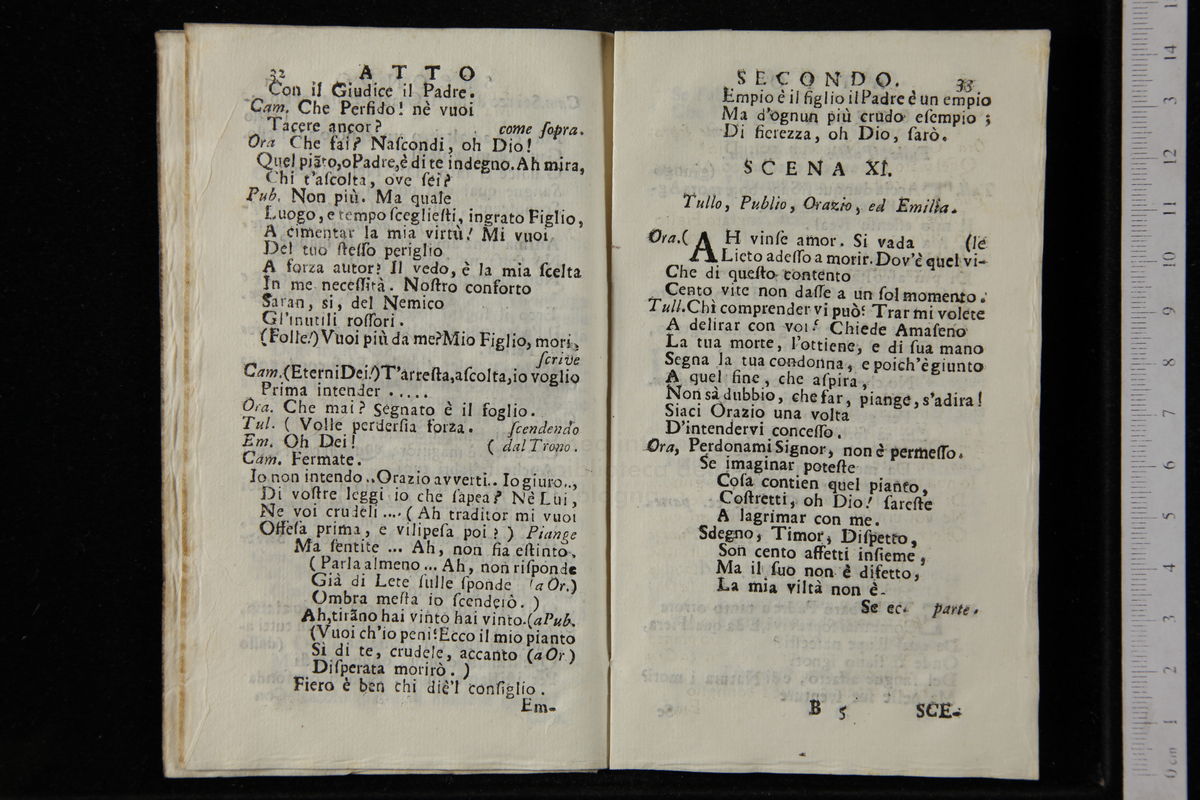 32 ATTO
Con il Giudice il Padre.
Cam. Che Perfido! nè vuoi
Tacere ancor? come ſopra.
Ora Che fai? Naſcondi, oh Dio!
Quel piãto,o Padre,è di te indegno. Ah mira,
Chi t'aſcolta, ove ſei?
Pub. Non più. Ma quale
Luogo, e tempo ſceglieſti, ingrato Figlio,
A cimentar la mia virtù! Mi vuoi
Del tuo ſteſſo periglio
A forza autor? Il vedo, è la mia ſcelta
In me neceſſità. Noſtro conforto
Saran, si, del Nemico
Gl'inutili roſſori.
(Folle!) Vuoi più da me? Mio Figlio, mori,
ſcrive
Cam.(Eterni Dei!) T'arreſta,aſcolta,io voglio
Prima intender .....
Ora. Che mai? Segnato è il foglio.
Tul. ( Volle perderſi a forza. ſcendendo
Em. Oh Dei! ( dal Trono.
Cam. Fermate.
Io non intendo .. Orazio avverti.. Io giuro..,
Di voſtre leggi io che ſapea? Nè Lui,
Ne voi crudeli .... ( Ah traditor mi vuoi
Offeſa prima, e vilipeſa poi? ) Piange
Ma ſentite ... Ah, non ſia eſtinto,
( Parla almeno ... Ah, non riſponde
Già di Lete ſulle ſponde (a Or.)
Ombra meſta io ſcenderò. )
Ah,tirãno hai vinto hai vinto.(a Pub.
(Vuoi ch'io peni! Ecco il mio pianto
Si di te, crudele, accanto (a Or)
Diſperata morirò. )
Fiero è ben chi diè'l conſiglio.
Em-
SECONDO. 33
Empio è il figlio il Padre è un empio
Ma d'ognun più crudo eſempio ;
Di fierezza, oh Dio, ſarò.
SCENA XI.
Tullo, Publio, Orazio, ed Emilia.
Ora.( AH vinſe amor. Si vada (le
Lieto adeſſo a morir. Dov'è quel vi-
Che di queſto contento
Cento vite non daſſe a un ſol momento.
Tull. Chi comprender vi può? Trar mi volete
A delirar con voi? Chiede Amaſeno
La tua morte, l'ottiene, e di ſua mano
Segna la tua condonna, e poich'è giunto
A quel fine, che aſpira,
Non sà dubbio, che far, piange, s'adira!
Siaci Orazio una volta
D'intendervi conceſſo.
Ora, Perdonami Signor, non è permeſſo.
Se imaginar poteſte
Coſa contien quel pianto,
Coſtretti, oh Dio! ſareſte
A lagrimar con me.
Sdegno, Timor, Diſpetto,
Son cento affetti inſieme,
Ma il ſuo non è difetto,
La mia viltà non è.
Se ec. parte.
B 5 SCE-